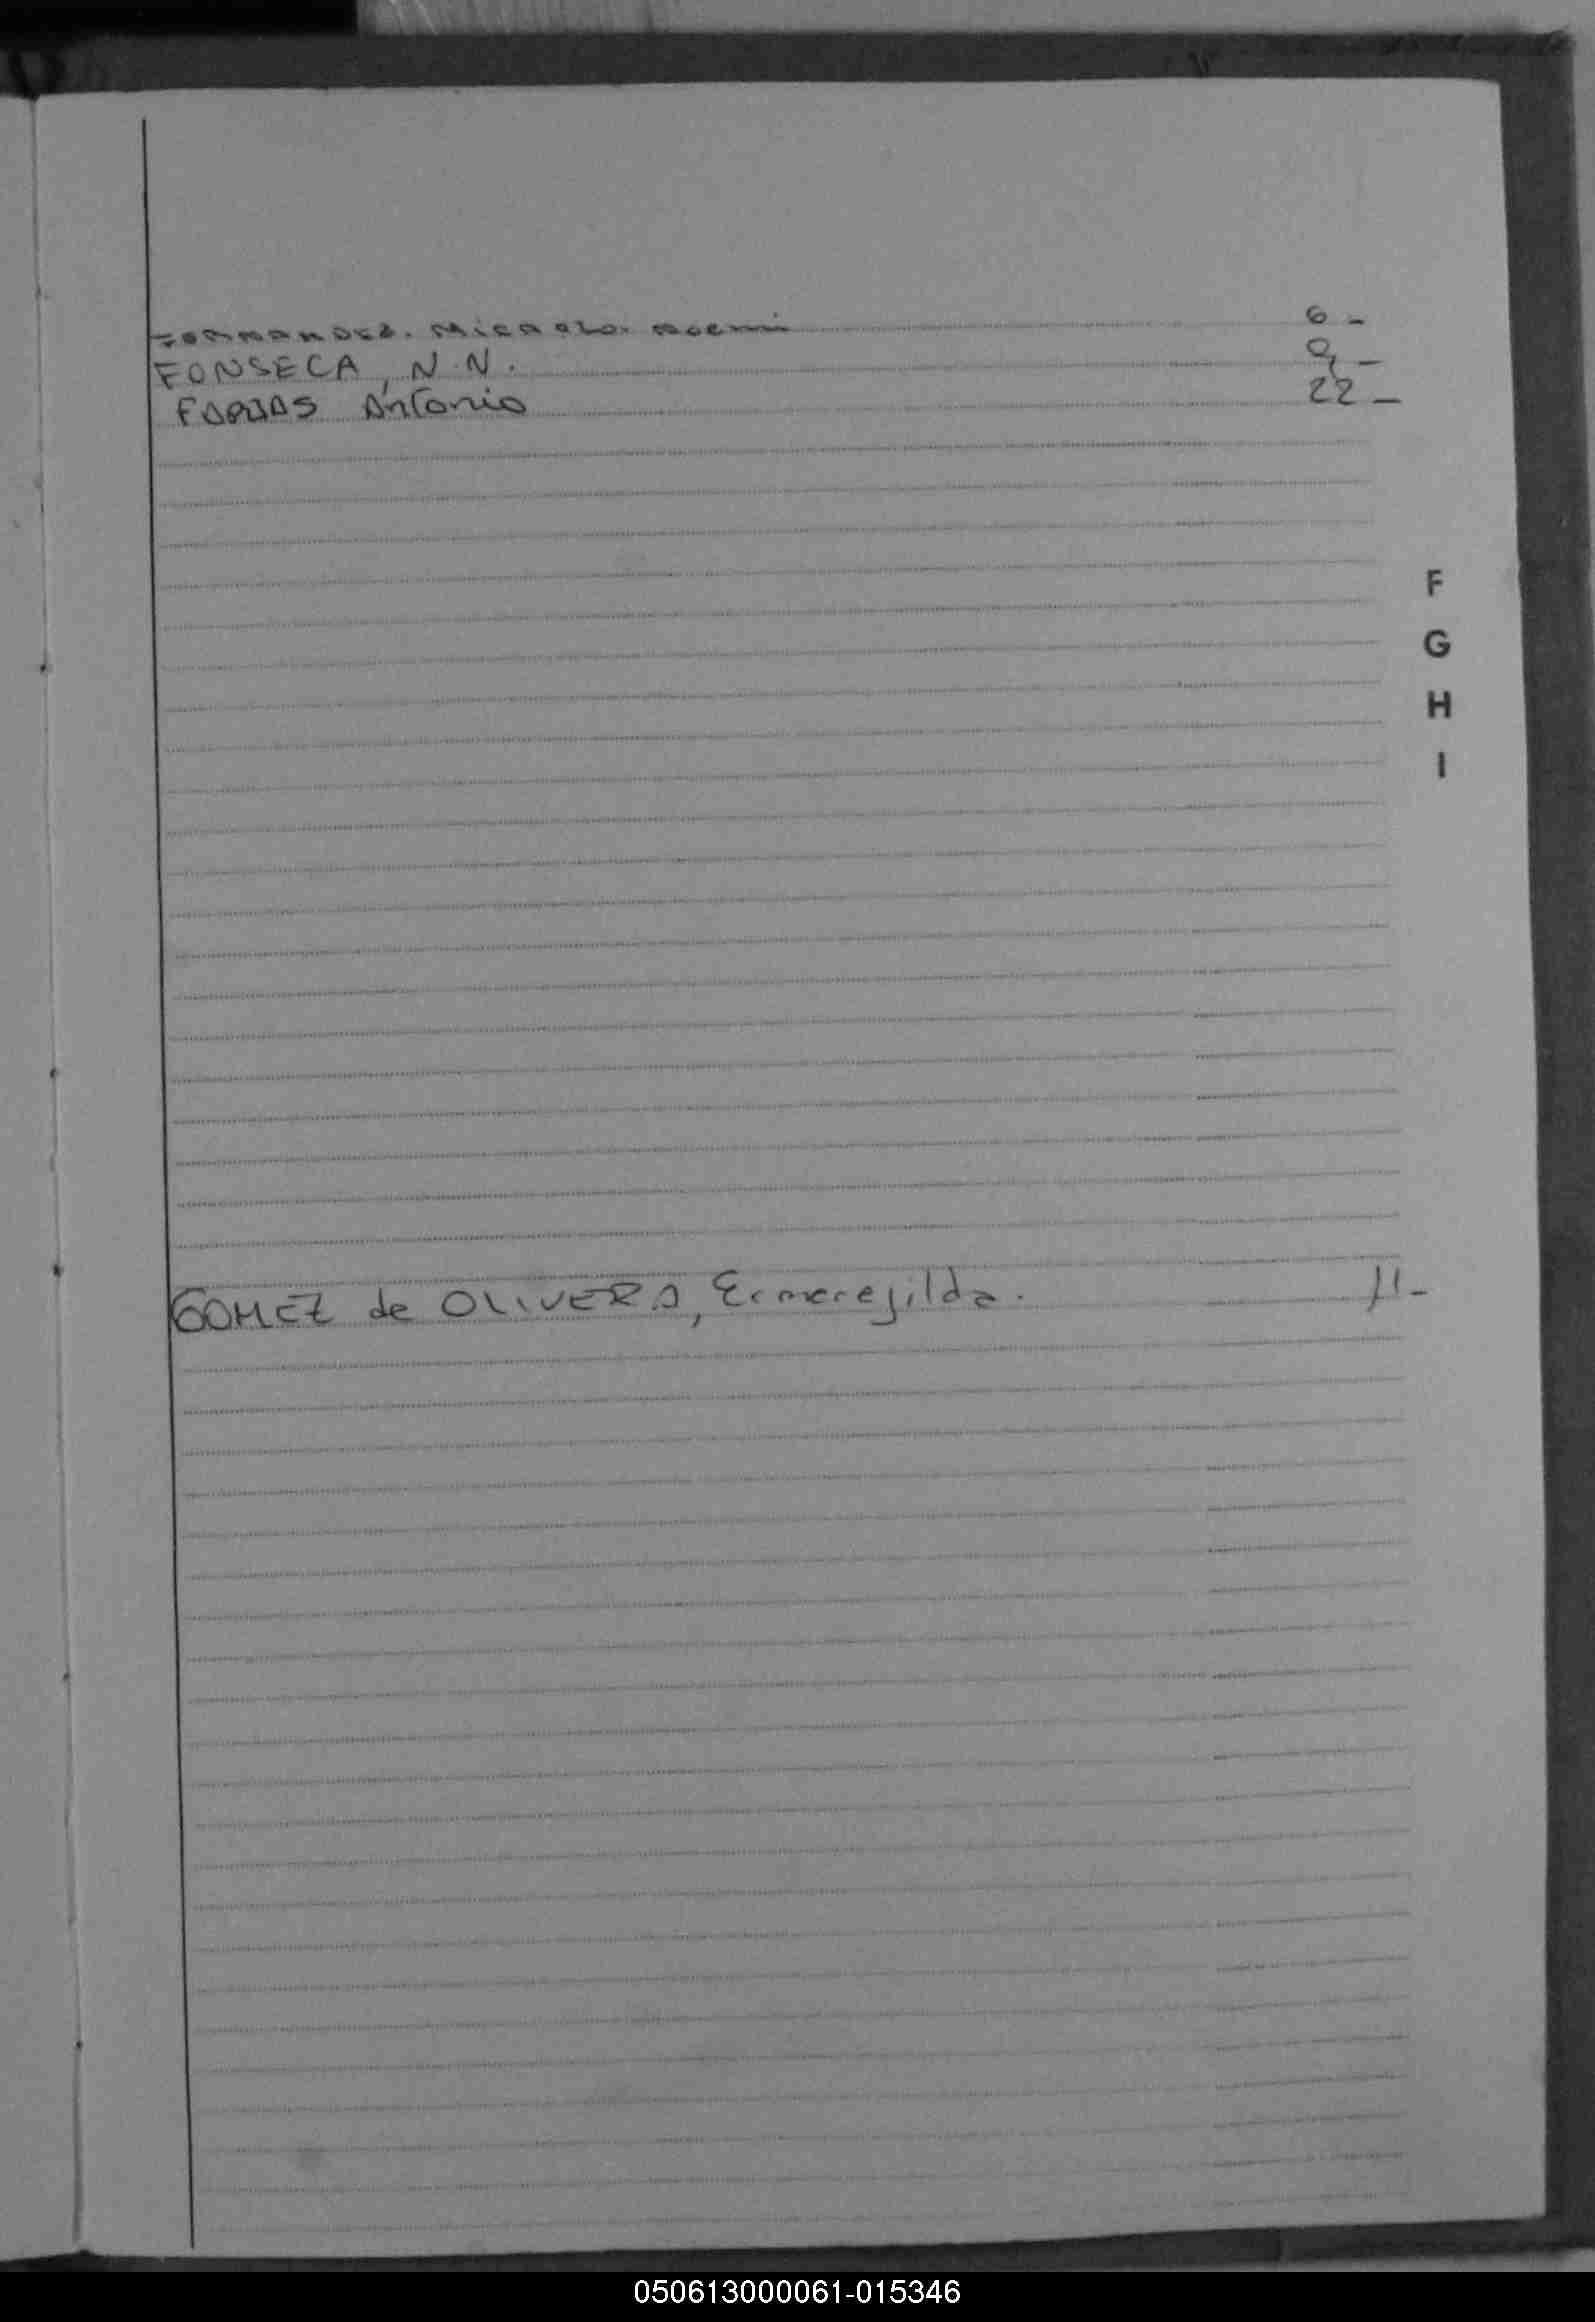 Fernandez. Micaela. Noemi 6 -
FONSECA, N.N. 9 -
FARIAS Antonio 22 -
F
G
H
I
GOMEZ de OLIVERA, Ermeregilda. 11 -
050613000061-015346